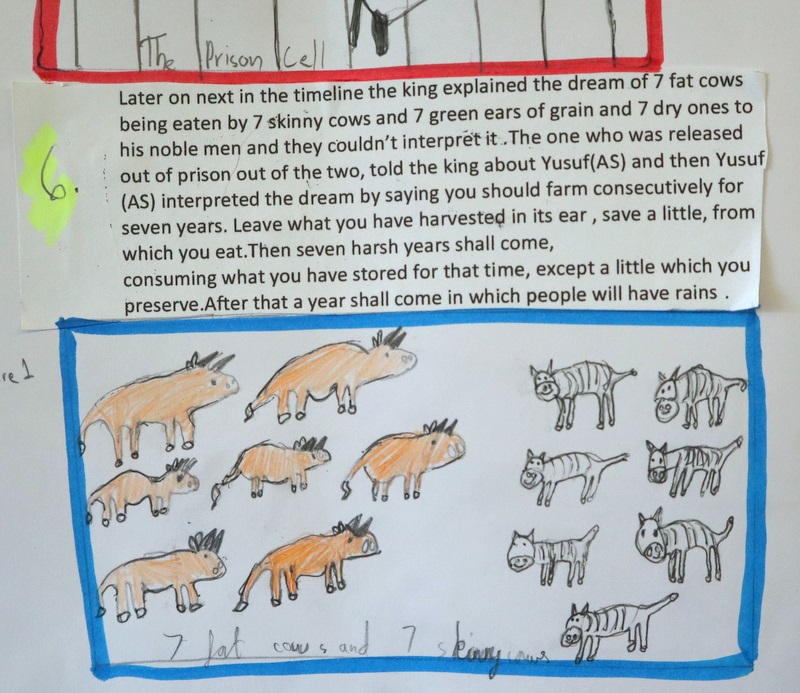 The Prison Cell
6.
Later on next in the timeline the king explained the dream of 7 fat cows
being eaten by 7 skinny cows and 7 green ears of grain and 7 dry ones to
his noble men and they couldn't interpret it .The one who was released
out of prison out of the two, told the king about Yusuf(AS) and then Yusuf
(AS) interpreted the dream by saying you should farm consecutively for
seven years. Leave what you have harvested in its ear , save a little, from
which you eat.Then seven harsh years shall come,
consuming what you have stored for that time, except a little which you
preserve.After that a year shall come in which people will have rains .
re 1
7 fat cows and 7 skinny cows